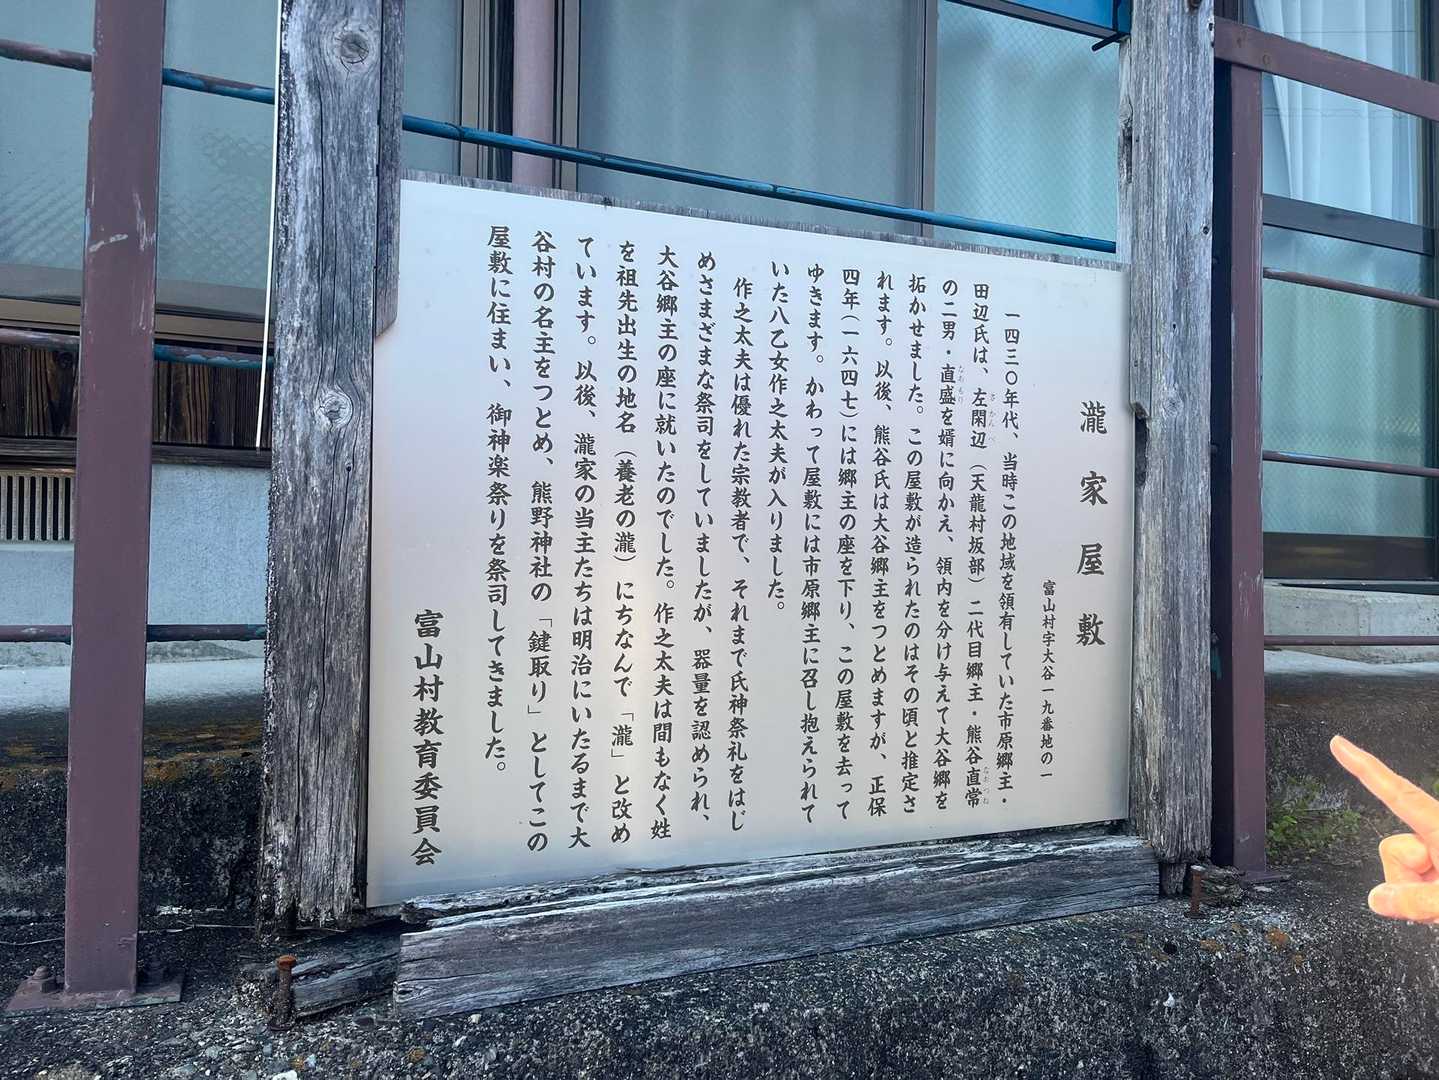 瀧家屋敷
富山村字大谷一九番地の一
一四三〇年代、当時この地域を領有していた市原郷主・
田辺氏は、左閑辺（天龍村坂部）二代目郷主・熊谷直常
さかんべ
なおつね
の二男・直盛を婿に向かえ、領内を分け与えて大谷郷を
なおもり
拓かせました。この屋敷が造られたのはその頃と推定さ
れます。以後、熊谷氏は大谷郷主をつとめますが、正保
四年（一六四七）には郷主の座を下り、この屋敷を去って
ゆきます。かわって屋敷には市原郷主に召し抱えられて
いた八乙女作之太夫が入りました。
作之太夫は優れた宗教者で、それまで氏神祭礼をはじ
めさまざまな祭司をしていましたが、器量を認められ、
大谷郷主の座に就いたのでした。作之太夫は間もなく姓
を祖先出生の地名（養老の瀧）にちなんで「瀧」と改め
ています。以後、瀧家の当主たちは明治にいたるまで大
谷村の名主をつとめ、熊野神社の「鍵取り」としてこの
屋敷に住まい、御神楽祭りを祭司してきました。
富山村教育委員会